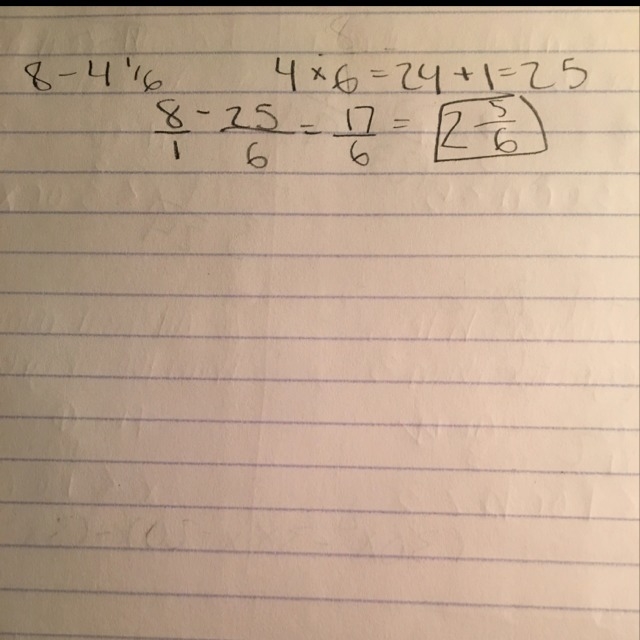 8 - 4 1/6 4 × 6 = 24 + 1 = 25
8/1 - 25/6 = 17/6 = 2 5/6